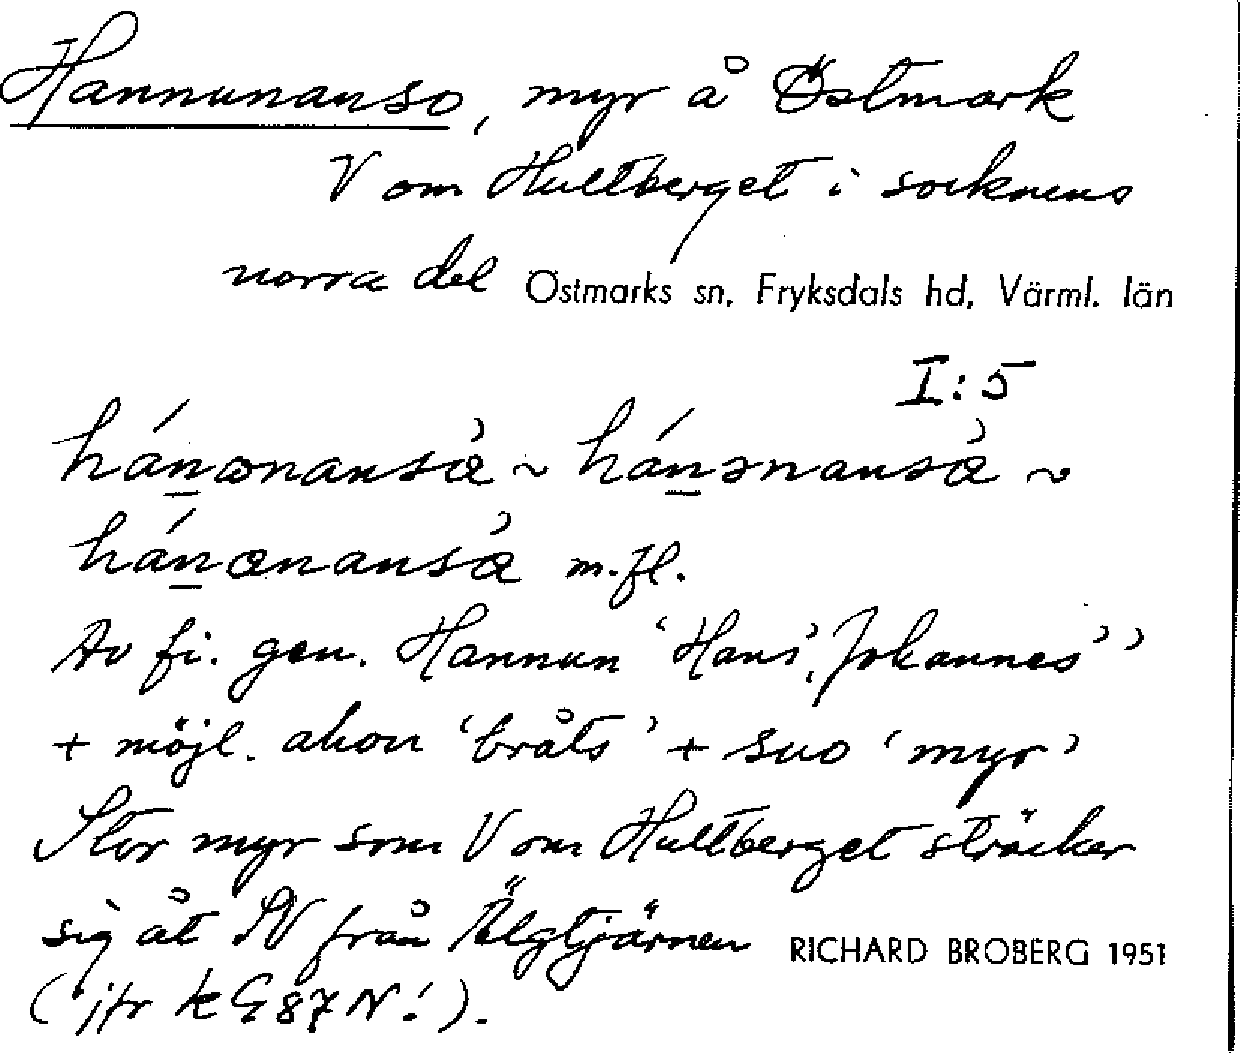 Hannunanso, myr å Östmark
V om Hultberget i socknens
norra del Östmarks sn, Fryksdals hd, Värml. län
I:5
hánωnansὰ̀ ~ hánənansὰ̀ ~
hánœnansὰ̀ m.fl.
Av fi. gen. Hannun ‘Hans’, Johannes’’
+ möjl. ahon ‘bråts’ + suo ‘myr’
Stor myr som V om Hultberget sträcker
sig åt SV från Älgtjärnen RICHARD BROBERG 1951
(jfr k G 87 N!).